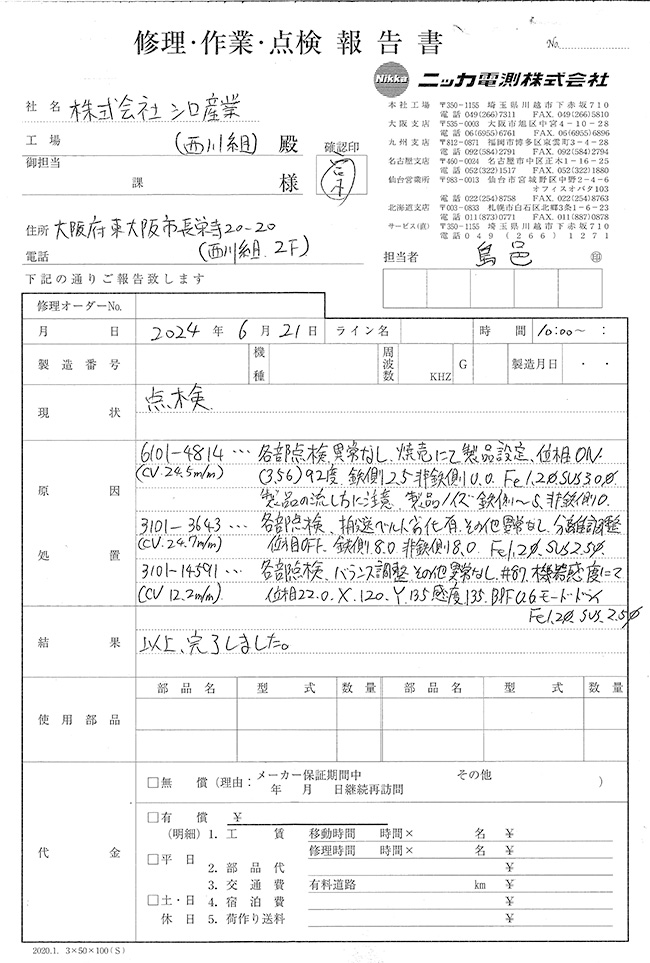 修理・作業・点検 報告書
No.
Nikka ニッカ電測株式会社
社名 株式会社シロ産業
工場 (西川組) 殿
御担当
課 様
確認印
住所 大阪府東大阪市長栄寺20-20
電話 (西川組.2F)
本社工場 〒350-1155 埼玉県川越市下赤坂710
電話 049(266)7311 FAX. 049(266)5810
大阪支店 〒535-0003 大阪市旭区中宮4-10-28
電話 06(6955)6761 FAX. 06(6955)6896
九州支店 〒812-0871 福岡市博多区東雲町3-4-28
電話 092(584)2791 FAX. 092(584)2794
名古屋支店 〒460-0024 名古屋市中区正木1-16-25
電話 052(322)1517 FAX. 052(332)3160
仙台営業所 〒983-0013 仙台市宮城野区中野2-4-6
オフィスオバタ103
電話 022(254)8758 FAX. 022(254)8763
北海道支店 〒003-0833 札幌市白石区北郷3条1-6-23
電話 011(873)0771 FAX. 011(887)0878
サービス(直) 〒350-1155 埼玉県川越市下赤坂710
電話 049(266)1271
担当者 島邑 印
下記の通りご報告致します
修理オーダーNo.
月日 2024年 6月 21日 ライン名 時間 10:00~ :
製造番号 機種 周波数 KHZ G 製造月日 ・ ・
現状 点検
原因
処置
6101-4814 … 各部点検、異常なし、焼売にて製品設定、位相ON
(CV.24.5m/m) (356)92度.鉄側12.5非鉄側10.0. Fe1.2Φ SUS3.0Φ
製品の流し方に注意、製品ノイズ鉄側~5、非鉄側10.
3101-3643 … 各部点検、搬送ベルト劣化有.その他異常なし、分離調整
(CV.24.7m/m) 位相OFF.鉄側8.0 非鉄側8.0. Fe1.2Φ.SUS2.5Φ.
3101-14591 … 各部点検、バランス調整 その他異常なし.#87.機器感度にて
(CV 12.2m/m) 位相22.0.X.120.Y.135感度135.BPF0.6モードドライ
Fe1.2Φ.SUS.2.5Φ
結果 以上、完了しました。
使用部品 部品名 型式 数量 部品名 型式 数量
代金
□無償(理由:メーカー保証期間中 その他 )
年 月 日継続再訪問
□有償 ¥
(明細) 1. 工賃 移動時間 時間× 名 ¥
修理時間 時間× 名 ¥
□平日 2. 部品代 ¥
3. 交通費 有料道路 km ¥
□土・日 4. 宿泊費 ¥
休日 5. 荷作り送料 ¥
2020.1. 3×50×100(S)